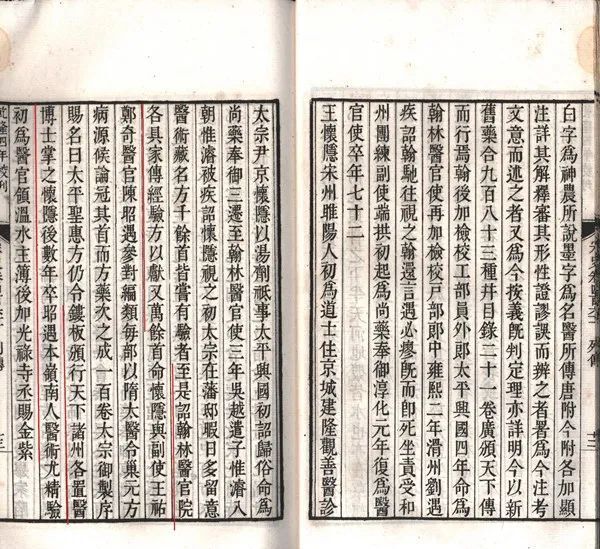 白字為神農所說墨字為名醫所傳唐附今附各加顯
注詳其解釋審其形性證謬誤而辨之者署為今注考
文意而述之者又為今按義旣判定理亦詳明今以新
舊藥合九百八十三種幷目錄二十一卷廣頒天下傳
而行焉翰後加檢校工部員外郎太平興國四年命為
翰林醫官使再加檢校戶部郎中雍熙二年滑州劉遇
疾詔翰馳往視之翰還言遇必瘳旣而卽死坐責受和
州團練副使端拱初為尚藥奉御淳化元年復為醫
官使卒年七十二
王懷隱宋州睢陽人初為道士住京城建隆觀善醫診
太宗尹京懷隱以湯劑祗事太平興國初詔歸俗命為
尚藥奉御三遷至翰林醫官使三年吳越遣子惟濬入
朝惟濬被疾詔懷隱視之初太宗在藩邸暇日多留意
醫術藏名方千餘首皆嘗有驗者至是詔翰林醫官院
各具家傳經驗方以獻又萬餘首命懷隱與副使王祐
鄭奇醫官陳昭遇參對編類每部以隋太醫令巢元方
病源候論冠其首而方藥次之成一百卷太宗御製序
賜名曰太平聖惠方仍令鏤板頒行天下諸州各置醫
博士掌之懷隱後數年卒昭遇本嶺南人醫術尤精驗
初為醫官領溫水主簿後加光祿寺丞賜金紫
乾隆四年校刊